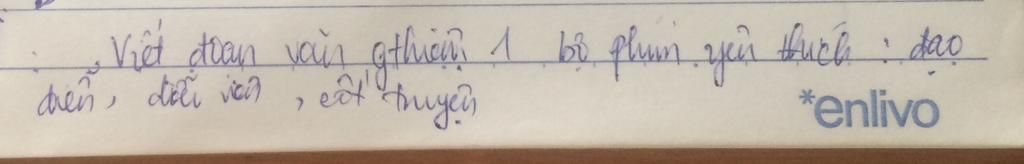 , Viết đoạn văn gthiệu 1 bộ phim yêu thích : đạo
diễn, diễn viên, cốt truyện
*enlivo